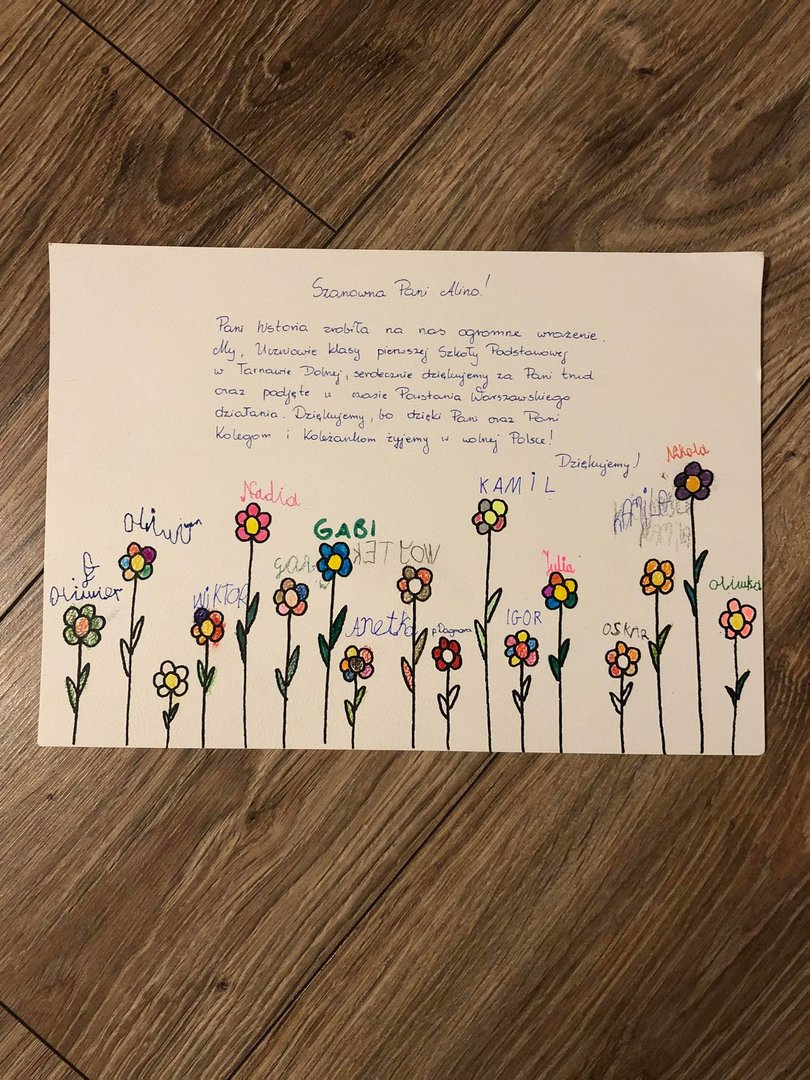 Szanowna Pani Alino!
Pani historia zrobiła na nas ogromne wrażenie.
My, Uczniowie klasy pierwszej Szkoły Podstawowej
w Tarnawie Dolnej, serdecznie dziękujemy za Pani trud
oraz podjęte w czasie Powstania Warszawskiego
działania. Dziękujemy, bo dzięki Pani oraz Pani
Kolegom i Koleżankom żyjemy w wolnej Polsce!
Dziękujemy!
Nikola
KAMIL
Nadia
GABI
WOJTEK
Julia
Oliwka
Oliwier
WIKTOR
Anetka
p. Dagmara
IGOR
OSKAR